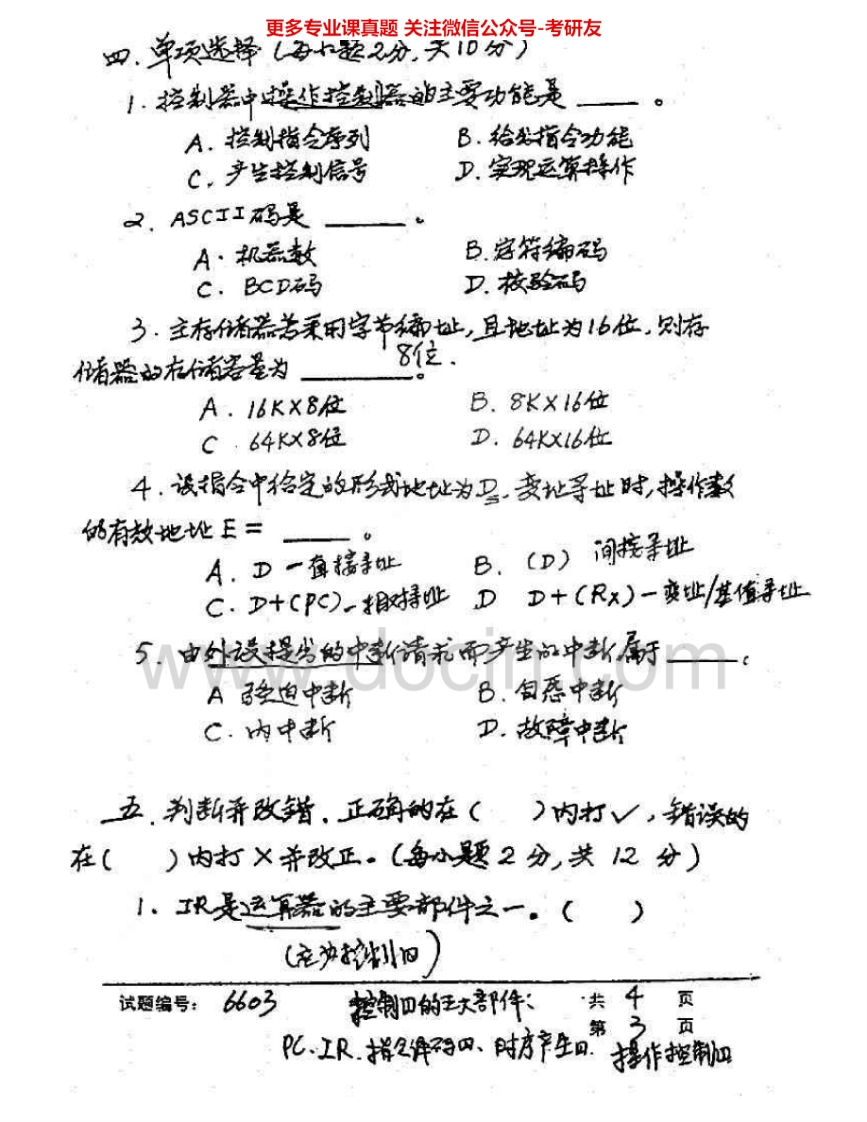 更多专业课真题 关注微信公众号-考研友
四、单项选择(每小题2分,共10分)
1.控制器中操作控制器的主要功能是____。
A.控制指令序列 B.给出指令功能
C.产生控制信号 D.实现运算操作
2.ASCII码是____。
A.机器数 B.字符编码
C.BCD码 D.校验码
3.主存储器若采用字节编址,且地址为16位,则存
8位.
储器的存储容量为____。
A.16K×8位 B.8K×16位
C.64K×8位 D.64K×16位
4.设指令中给定的形式地址为D,变址寻址时,操作数
的有效地址E=____。
A.D-直接寻址 B.(D) 间接寻址
C.D+(PC)-相对寻址 D D+(Rx)-变址/基值寻址
5.由外设提出的中断请求而产生的中断属于____。
A 强迫中断 B.自愿中断
C.内中断 D.故障中断
www.docin.com
五.判断并改错.正确的在( )内打✓,错误的
在( )内打×并改正。(每小题2分,共12分)
1.IR是运算器的主要部件之一。( )
(应为控制四)
试题编号: 6603 控制四的五大部件: 共 4 页
第 3 页
PC、IR、指令译码四、时序产生四. 操作控制四